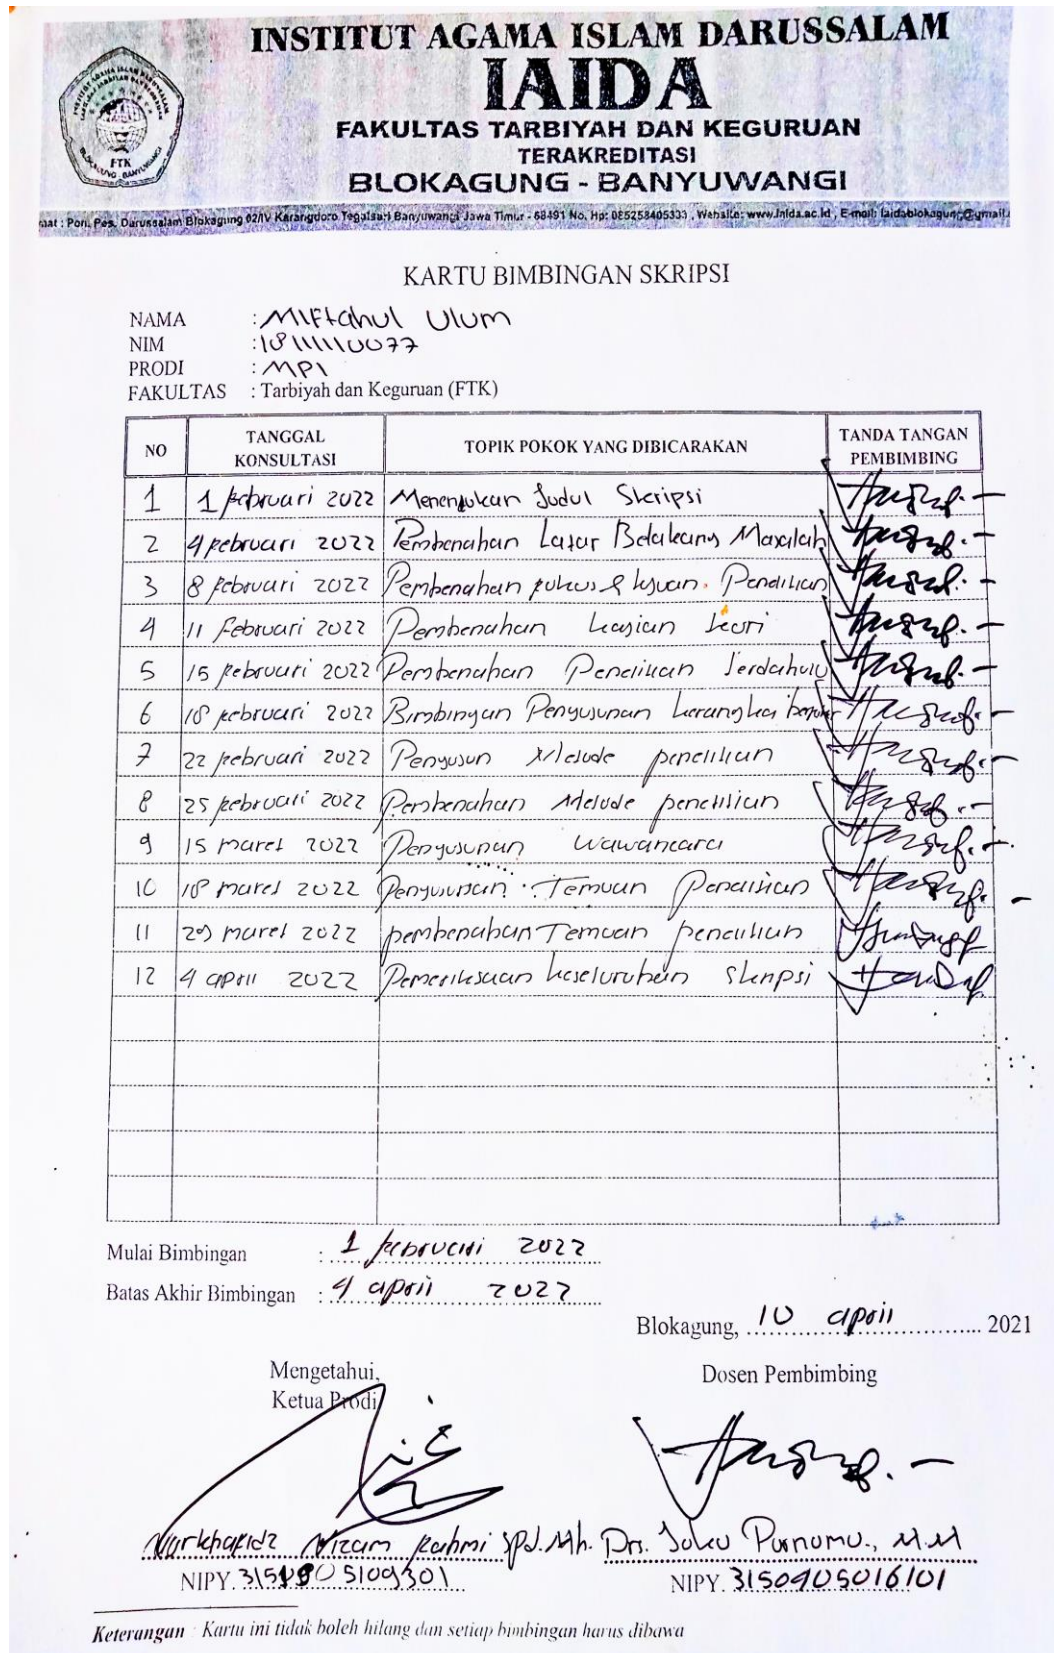 INSTITUT AGAMA ISLAM DARUSSALAM
IAIDA
FAKULTAS TARBIYAH DAN KEGURUAN
TERAKREDITASI
BLOKAGUNG - BANYUWANGI
FTK
BLOKAGUNG - BANYUWANGI
Pon. Pes. Darussalam Blokagung 02/IV Karangdoro Tegalsari Banyuwangi Jawa Timur - 68491 No. Hp: 085258405333 , Website: www.iaida.ac.id , E-mail: iaidablokagung@gmail.
KARTU BIMBINGAN SKRIPSI
NAMA : Miftahul Ulum
NIM : 18111110077
PRODI : MPI
FAKULTAS : Tarbiyah dan Keguruan (FTK)
NO TANGGAL KONSULTASI TOPIK POKOK YANG DIBICARAKAN TANDA TANGAN PEMBIMBING
1 1 Februari 2022 Menentukan Judul Skripsi
2 4 Februari 2022 Pembenahan Latar Belakang Masalah
3 8 Februari 2022 Pembenahan fokus & tujuan Penelitian
4 11 Februari 2022 Pembenahan kajian teori
5 15 Februari 2022 Pembenahan Penelitian Terdahulu
6 18 Februari 2022 Bimbingan Penyusunan kerangka berpikir
7 22 Februari 2022 Penyusun Metode penelitian
8 25 Februari 2022 Pembenahan Metode penelitian
9 15 maret 2022 Penyusunan wawancara
10 18 maret 2022 Penyusunan Temuan Penelitian
11 29 maret 2022 pembenahan Temuan penelitian
12 4 april 2022 Pemeriksaan keseluruhan skripsi
Mulai Bimbingan : 1 Februari 2022
Batas Akhir Bimbingan : 4 april 2022
Blokagung, 10 april 2021
Mengetahui, Dosen Pembimbing
Ketua Prodi
Nurkhafidz Nizam Fahmi S.Pd. MH. Drs. Joko Purnomo., M.M
NIPY. 3150905016101
Keterangan : Kartu ini tidak boleh hilang dan setiap bimbingan harus dibawa